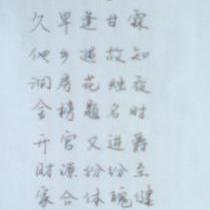 久旱逢甘霖
他乡遇故知
洞房花烛夜
金榜题名时
开官又进爵
财源纷纷至
家合体魄健